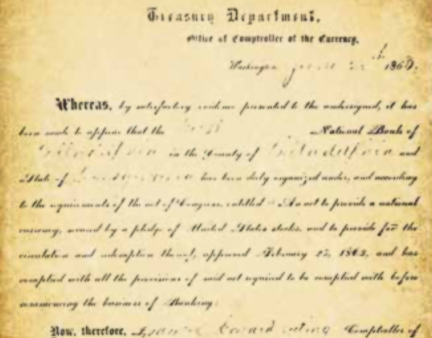 Treasury Department,
Office of Comptroller of the Currency,
Washington, June 20th 1863.
Whereas, by satisfactory evidence presented to the undersigned, it has
been made to appear that the First National Bank of
Philadelphia in the County of Philadelphia and
State of Pennsylvania has been duly organized under, and according
to the requirements of the act of Congress, entitled "An act to provide a national
currency, secured by a pledge of United States stocks, and to provide for the
circulation and redemption thereof, approved February 25, 1863, and has
complied with all the provisions of said act required to be complied with before
commencing the business of Banking:
Now, therefore, Comptroller of